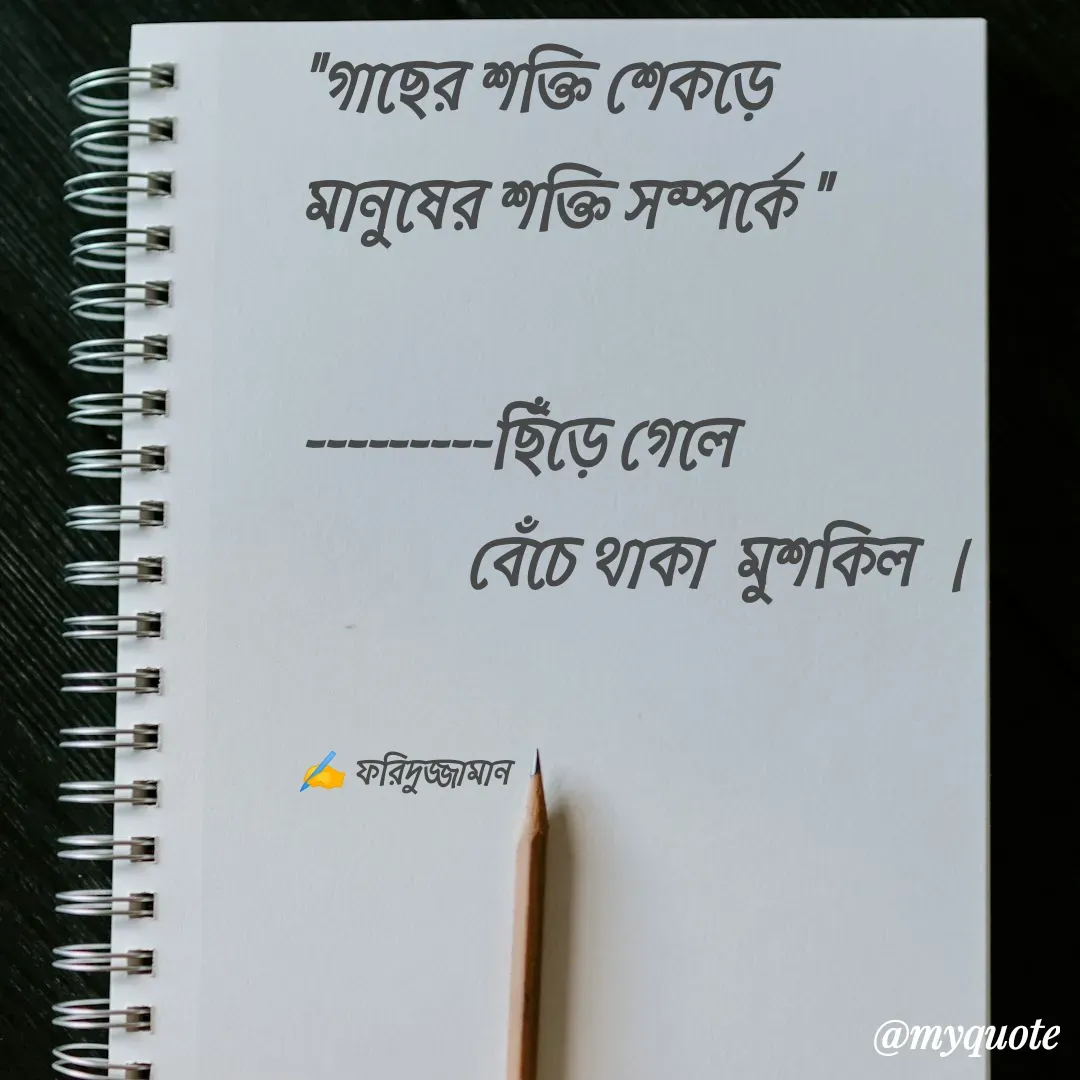 "গাছের শক্তি শেকড়ে
মানুষের শক্তি সম্পর্কে "
---------ছিঁড়ে গেলে
বেঁচে থাকা মুশকিল ।
✍️ ফরিদুজ্জামান
@myquote